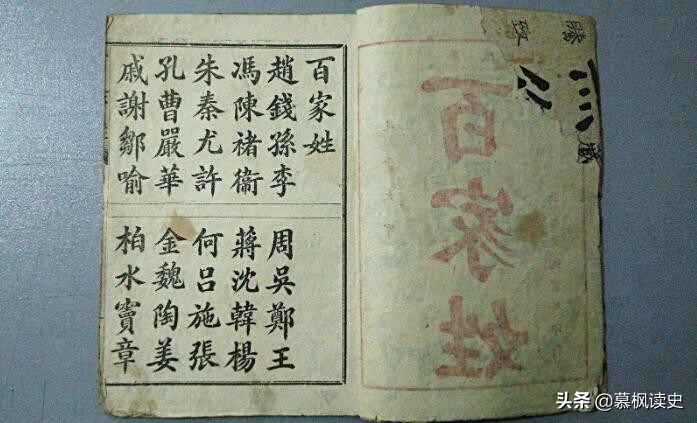 百家姓
趙錢孫李
周吳鄭王
馮陳褚衛
蔣沈韓楊
朱秦尤許
何吕施張
孔曹嚴華
金魏陶姜
戚謝鄒喻
柏水竇章
百家姓
公
头条 @慕枫读史